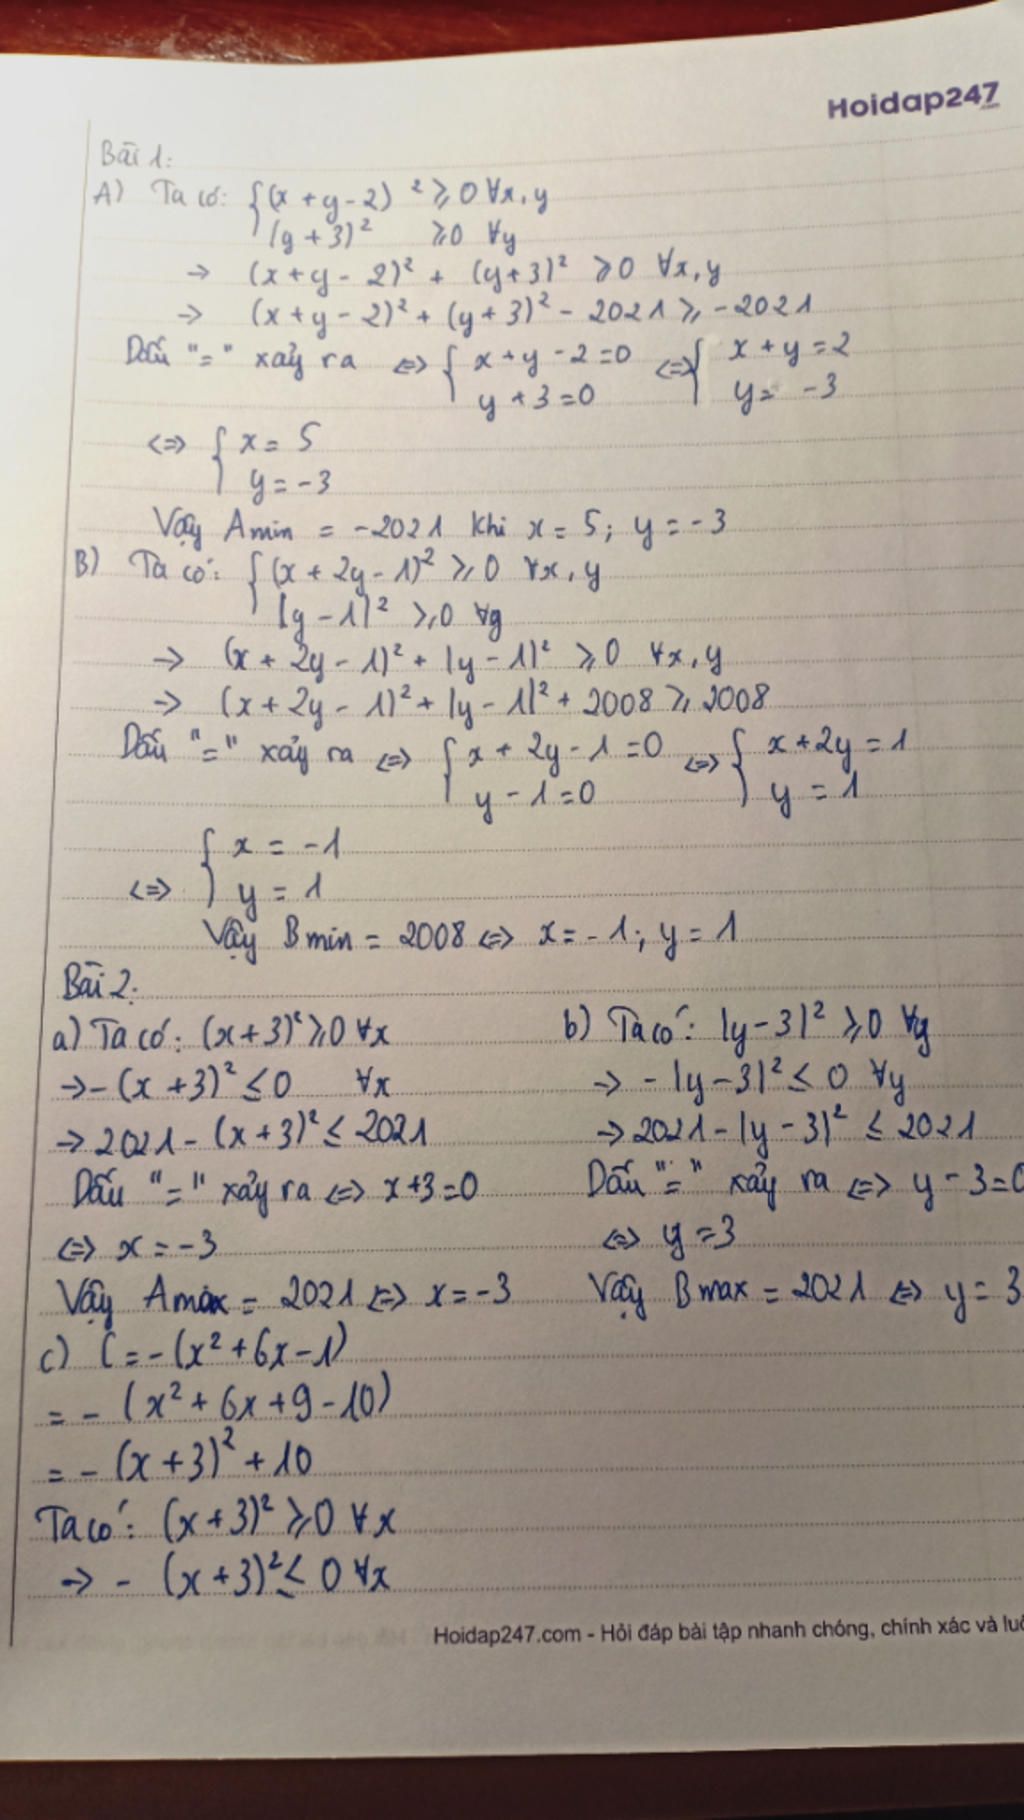 Hoidap247
.com
Bài 1:
A) Ta có: { (x + y - 2)² ≥ 0 ∀x, y
(y + 3)² ≥ 0 ∀y
→ (x + y - 2)² + (y + 3)² ≥ 0 ∀x, y
→ (x + y - 2)² + (y + 3)² - 2021 ≥ -2021
Dấu "=" xảy ra <=> { x + y - 2 = 0 <=> { x + y = 2
y + 3 = 0 y = -3
<=> { x = 5
y = -3
Vậy Amin = -2021 khi x = 5; y = -3
B) Ta có: { (x + 2y - 1)² ≥ 0 ∀x, y
(y - 1)² ≥ 0 ∀y
→ (x + 2y - 1)² + (y - 1)² ≥ 0 ∀x, y
→ (x + 2y - 1)² + (y - 1)² + 2008 ≥ 2008
Dấu "=" xảy ra <=> { x + 2y - 1 = 0 <=> { x + 2y = 1
y - 1 = 0 y = 1
{ x = -1
<=> y = 1
Vậy Bmin = 2008 <=> x = -1; y = 1
Bài 2:
a) Ta có: (x + 3)² ≥ 0 ∀x
→ -(x + 3)² ≤ 0 ∀x
→ 2021 - (x + 3)² ≤ 2021
Dấu "=" xảy ra <=> x + 3 = 0
<=> x = -3
Vậy Amax = 2021 <=> x = -3
b) Ta có: (y - 3)² ≥ 0 ∀y
→ -(y - 3)² ≤ 0 ∀y
→ 2021 - (y - 3)² ≤ 2021
Dấu "=" xảy ra <=> y - 3 = 0
<=> y = 3
Vậy Bmax = 2021 <=> y = 3
c) C = -(x² + 6x - 1)
= -(x² + 6x + 9 - 10)
= -(x + 3)² + 10
Ta có: (x + 3)² ≥ 0 ∀x
→ -(x + 3)² ≤ 0 ∀x
Hoidap247.com - Hỏi đáp bài tập nhanh chóng, chính xác và